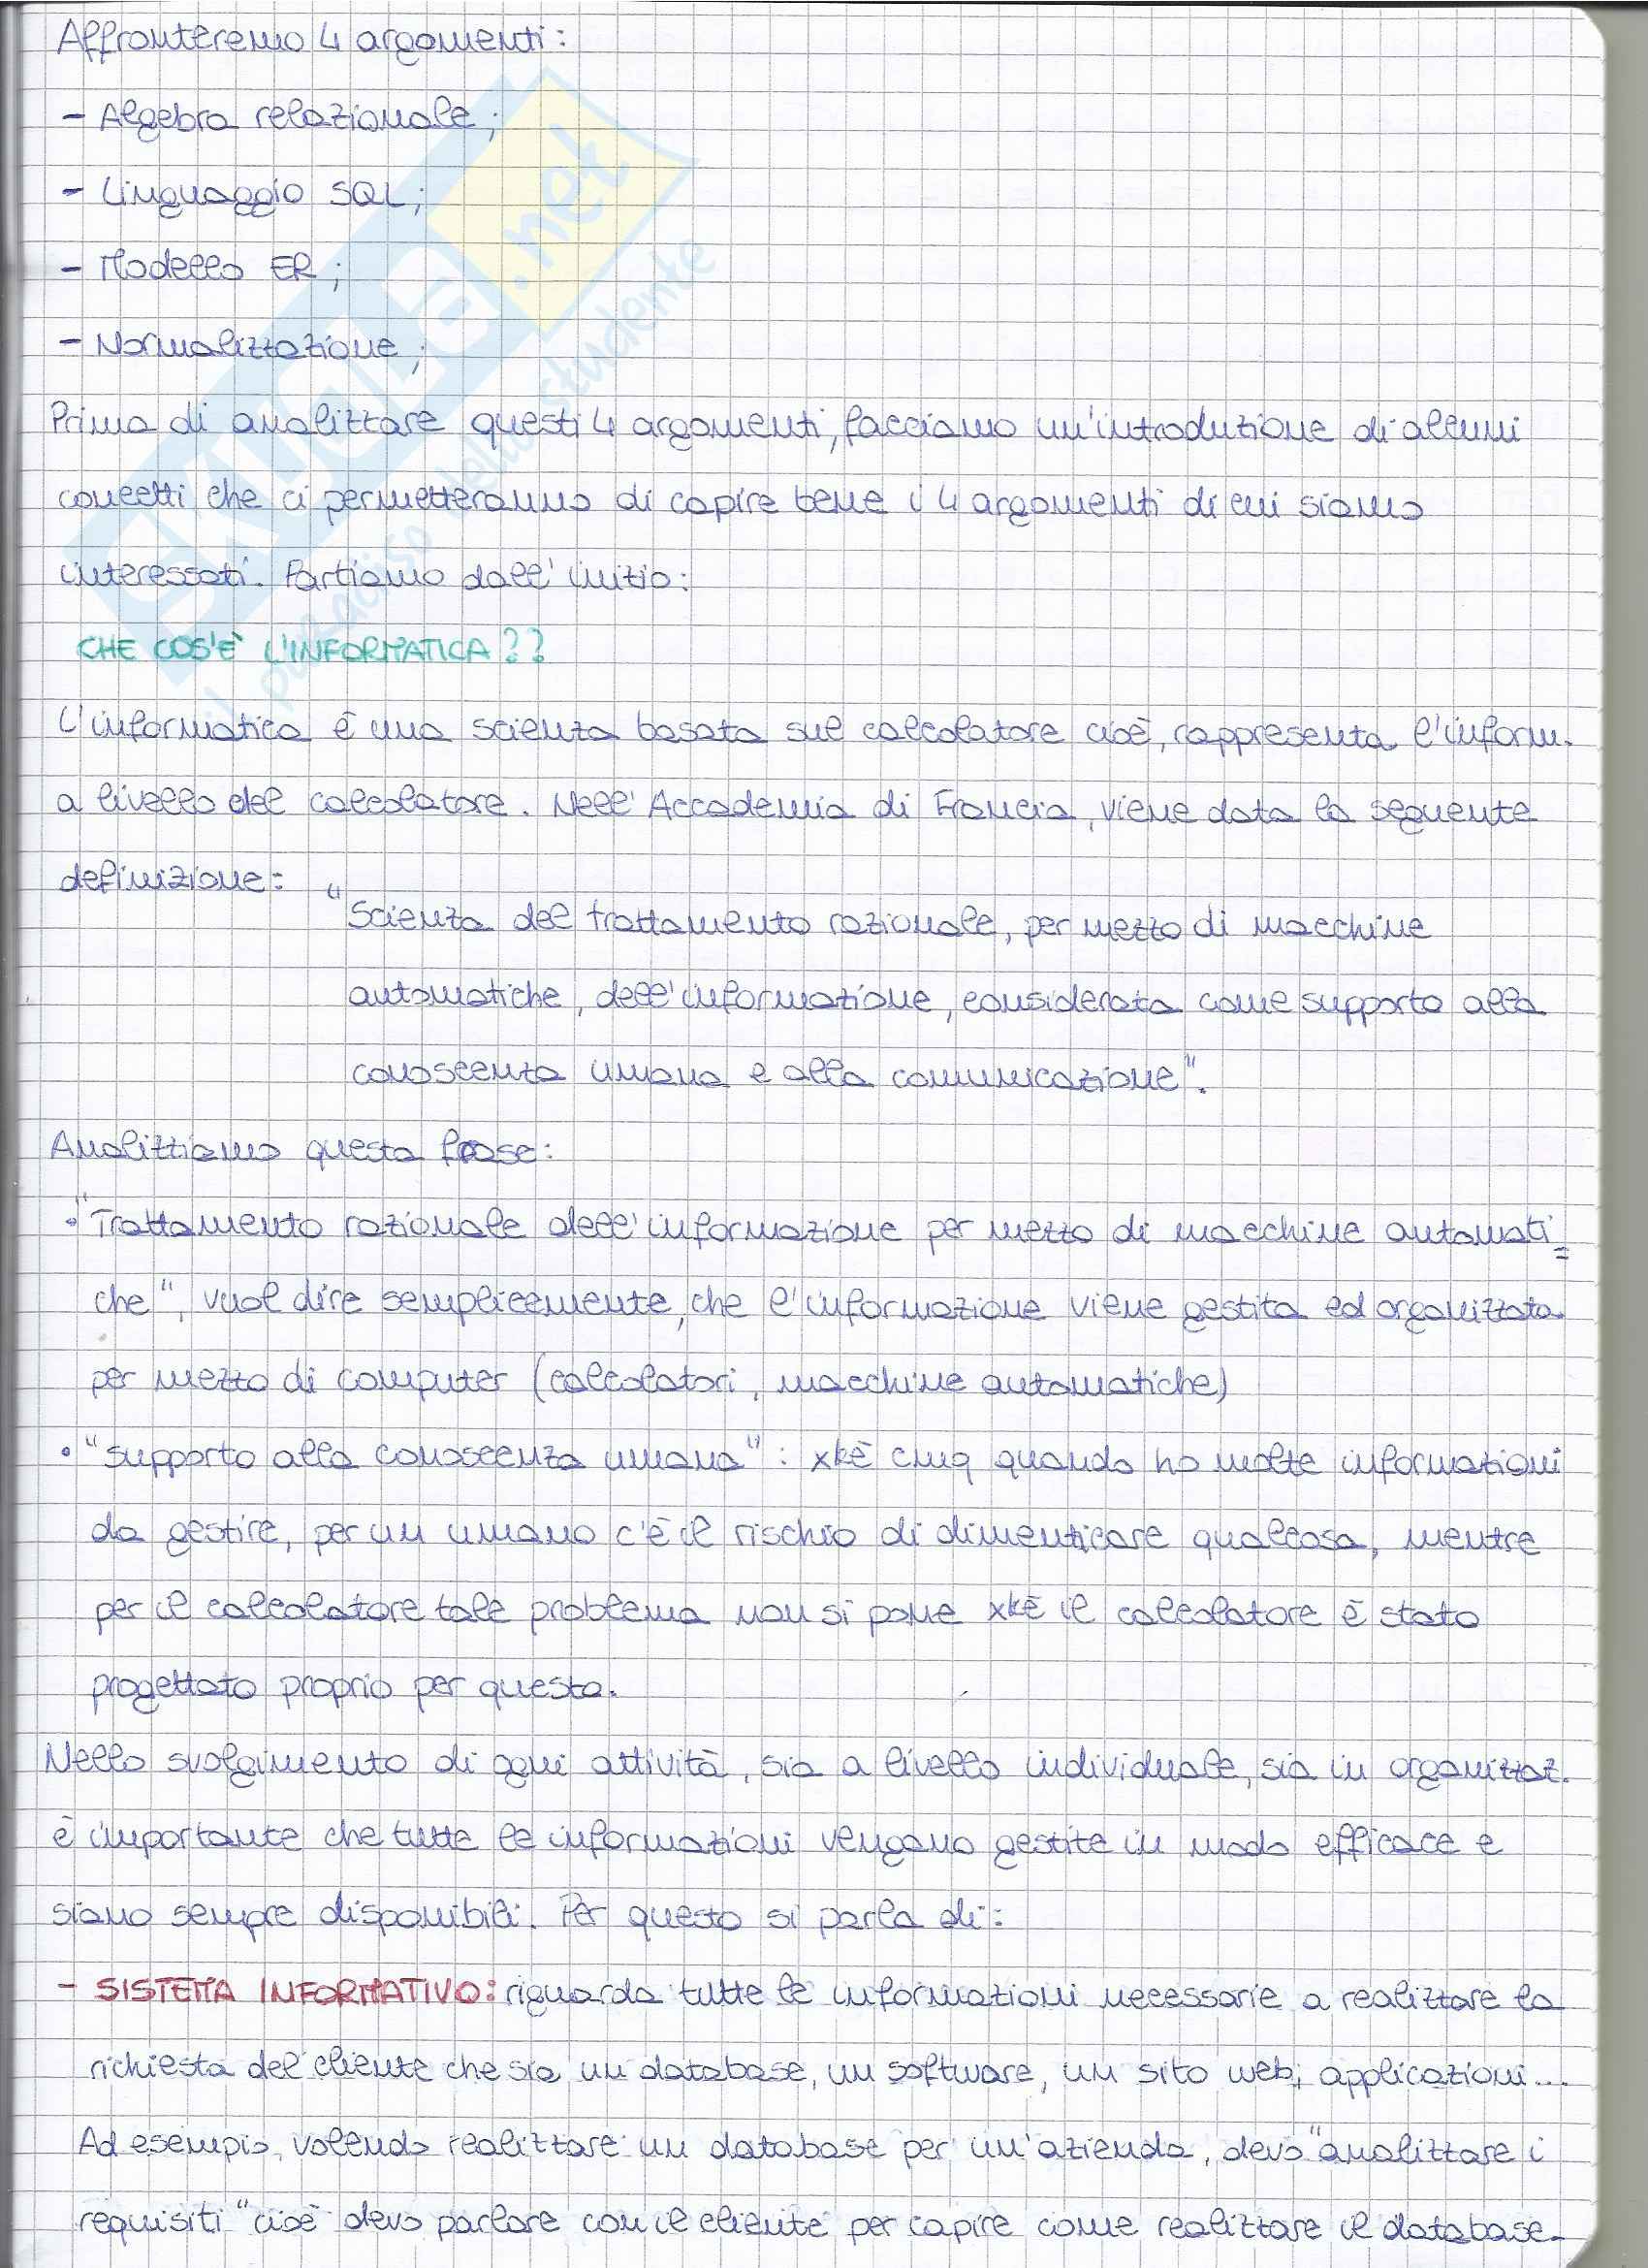 Affronteremo 4 argomenti:
- Algebra relazionale;
- Linguaggio SQL;
- Modello ER;
- Normalizzazione;
Prima di analizzare questi 4 argomenti, facciamo un'introduzione di alcuni
concetti che ci permetteranno di capire bene i 4 argomenti di cui siamo
interessati. Partiamo dall'inizio:
CHE COS'È L'INFORMATICA??
L'informatica è una scienza basata sul calcolatore cioè, rappresenta l'inform.
a livello del calcolatore. Nell'Accademia di Francia, viene data la seguente
definizione: "Scienza del trattamento razionale, per mezzo di macchine
automatiche, dell'informazione, considerata come supporto alla
conoscenza umana e alla comunicazione".
Analizziamo questa frase:
• "Trattamento razionale dell'informazione per mezzo di macchine automati=
che", vuol dire semplicemente, che l'informazione viene gestita ed organizzata
per mezzo di computer (calcolatori, macchine automatiche)
• "supporto alla conoscenza umana": xkè cmq quando ho molte informazioni
da gestire, per un umano c'è il rischio di dimenticare qualcosa, mentre
per il calcolatore tale problema non si pone xkè il calcolatore è stato
progettato proprio per questo.
Nello svolgimento di ogni attività, sia a livello individuale, sia in organizzaz.
è importante che tutte le informazioni vengano gestite in modo efficace e
siano sempre disponibili. Per questo si parla di:
- SISTEMA INFORMATIVO: riguarda tutte le informazioni necessarie a realizzare la
richiesta del cliente che sia un database, un software, un sito web, applicazioni...
Ad esempio, volendo realizzare un database per un'azienda, devo "analizzare i
requisiti" cioè devo parlare con il cliente per capire come realizzare il database.
SKUOLA.net
il paradiso dello studente